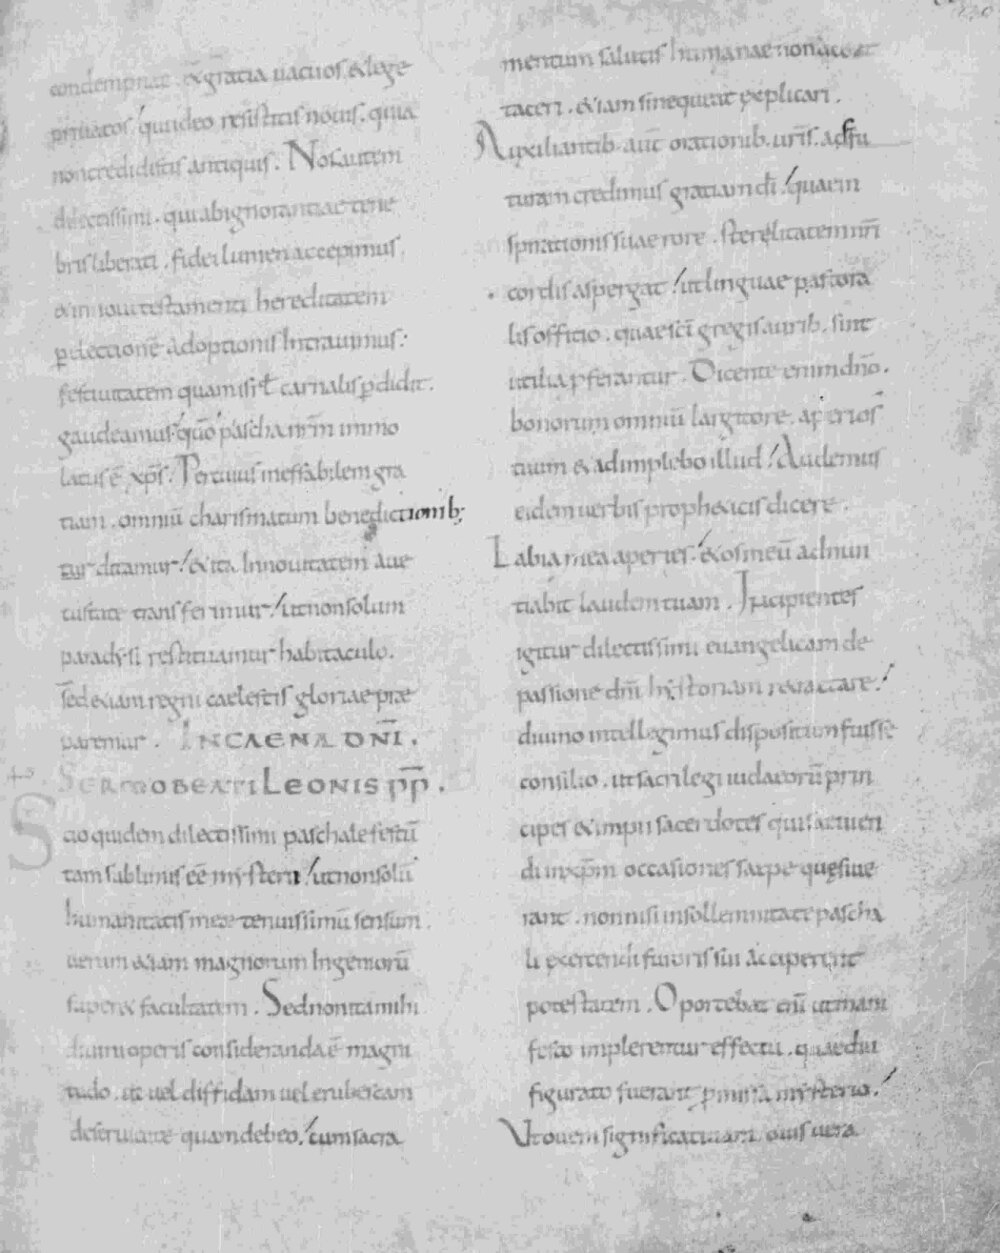 condempnat. & gratia uacuos. & lege
priuatos quideo resistitis nouis. quia
non credidistis antiquis. Nos autem
dilectissimi. qui ab ignorantiae tene
bris liberati. fidei lumen accepimus
& in noui testamenti hereditatem
p electionē adoptionis Intrauimus:
festiuitatem quam isrt carnalis pdidit.
gaudeamus quō pascha nr̄m immo
latus ē xp̄s. Per cuius ineffabilem gra
tiam. omniū charismatum benedictionib;
tur ditamur & ita Innouitatem a ue
tustate transferimur ut non solum
paradysi restituamur habitaculo.
sed etiam regni caelestis gloriae præ
paremur. IN CAENA DN̄I.
SERMO BEATI LEONIS PP̄.
Scio quidem dilectissimi paschale festū
tam sublimis eē mysterii ut non solū
humanitatis meae tenuissimū sensum.
uerum etiam magnorum Ingeniorū
super& facultatem. Sed non ita mihi
diuini operis consideranda ē magni
tudo. ut uel diffidam uel erubescam
deseruitute quam debeo. cum sacra
mentum salutis humanae non liceat
taceri. & iam si nequeat explicari.
Auxiliantib. aut̄ orationib. ur̄is. adfu
turam credimus gratiam dī quae in
spirationis suae rore. sterelitatem nr̄i
cordis aspergat ut linguae pastora
lis officio. quae scī gregis aurib. sint
utilia pferantur. Dicente enim dn̄o.
bonorum omniū largitore. aperi os
tuum & adimplebo illud Audemus
eidem uerbis propheticis dicere.
Labia mea aperies. & os meū adnun
tiabit laudem tuam. Incipientes
igitur dilectissimi euangelicam de
passione dn̄i hystoriam retractare.
diuino intellegimus dispositum fuisse
consilio. ut sacrilegi iudaeorū prin
cipes & impii sacerdotes qui saeuien
di in xp̄m occasiones saepe quęsiue
rant. non nisi in sollemnitate pascha
li exercendi furoris sui acciperent
potestatem. Oportebat enī ut mani
festo implerentur effectu. quae diu
figurato fuerant pmissa mysterio.
Ut ouem significatiuam ouis uera